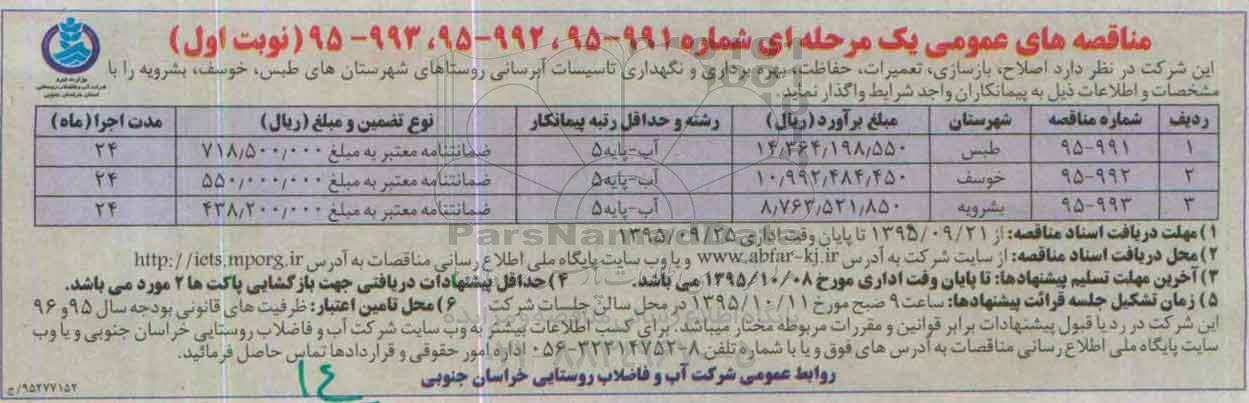 مناقصه های عمومی یک مرحله ای شماره ۹۹۱-۹۵ ، ۹۹۲-۹۵، ۹۹۳-۹۵ (نوبت اول)
وزارت نیرو
شرکت آب و فاضلاب روستایی
استان خراسان جنوبی
این شرکت در نظر دارد اصلاح، بازسازی، تعمیرات، حفاظت، بهره برداری و نگهداری تاسیسات آبرسانی روستاهای شهرستان های طبس، خوسف، بشرویه را با
مشخصات و اطلاعات ذیل به پیمانکاران واجد شرایط واگذار نماید.
ردیف شماره مناقصه شهرستان مبلغ برآورد (ریال) رشته و حداقل رتبه پیمانکار نوع تضمین و مبلغ (ریال) مدت اجرا (ماه)
۱ ۹۵-۹۹۱ طبس ۱۴٫۳۶۴٫۱۹۸٫۵۵۰ آب-پایه۵ ضمانتنامه معتبر به مبلغ ۷۱۸٫۵۰۰٫۰۰۰ ۲۴
۲ ۹۵-۹۹۲ خوسف ۱۰٫۹۹۲٫۴۸۴٫۴۵۰ آب-پایه۵ ضمانتنامه معتبر به مبلغ ۵۵۰٫۰۰۰٫۰۰۰ ۲۴
۳ ۹۵-۹۹۳ بشرویه ۸٫۷۶۳٫۵۲۱٫۸۵۰ آب-پایه۵ ضمانتنامه معتبر به مبلغ ۴۳۸٫۲۰۰٫۰۰۰ ۲۴
۱) مهلت دریافت اسناد مناقصه: از ۱۳۹۵/۰۹/۲۱ تا پایان وقت اداری ۱۳۹۵/۰۹/۲۵
ParsNamadData
۲) محل دریافت اسناد مناقصه: از سایت شرکت به آدرس www.abfar-kj.ir و یا وب سایت پایگاه ملی اطلاع رسانی مناقصات به آدرس http://iets.mporg.ir
۳) آخرین مهلت تسلیم پیشنهادها: تا پایان وقت اداری مورخ ۱۳۹۵/۱۰/۰۸ می باشد. ۴) حداقل پیشنهادات دریافتی جهت بازگشایی پاکت ها ۲ مورد می باشد.
۵) زمان تشکیل جلسه قرائت پیشنهادها: ساعت ۹ صبح مورخ ۱۳۹۵/۱۰/۱۱ در محل سالن جلسات شرکت ۶) محل تامین اعتبار: ظرفیت های قانونی بودجه سال ۹۵ و ۹۶
این شرکت در رد یا قبول پیشنهادات برابر قوانین و مقررات مربوطه مختار میباشد. برای کسب اطلاعات بیشتر به وب سایت شرکت آب و فاضلاب روستایی خراسان جنوبی و یا وب
سایت پایگاه ملی اطلاع رسانی مناقصات به آدرس های فوق و یا با شماره تلفن ۸-۳۲۲۱۴۷۵۲-۰۵۶ اداره امور حقوقی و قراردادها تماس حاصل فرمائید.
روابط عمومی شرکت آب و فاضلاب روستایی خراسان جنوبی
۱۴
۹۵۲۷۷۱۵۲/ج